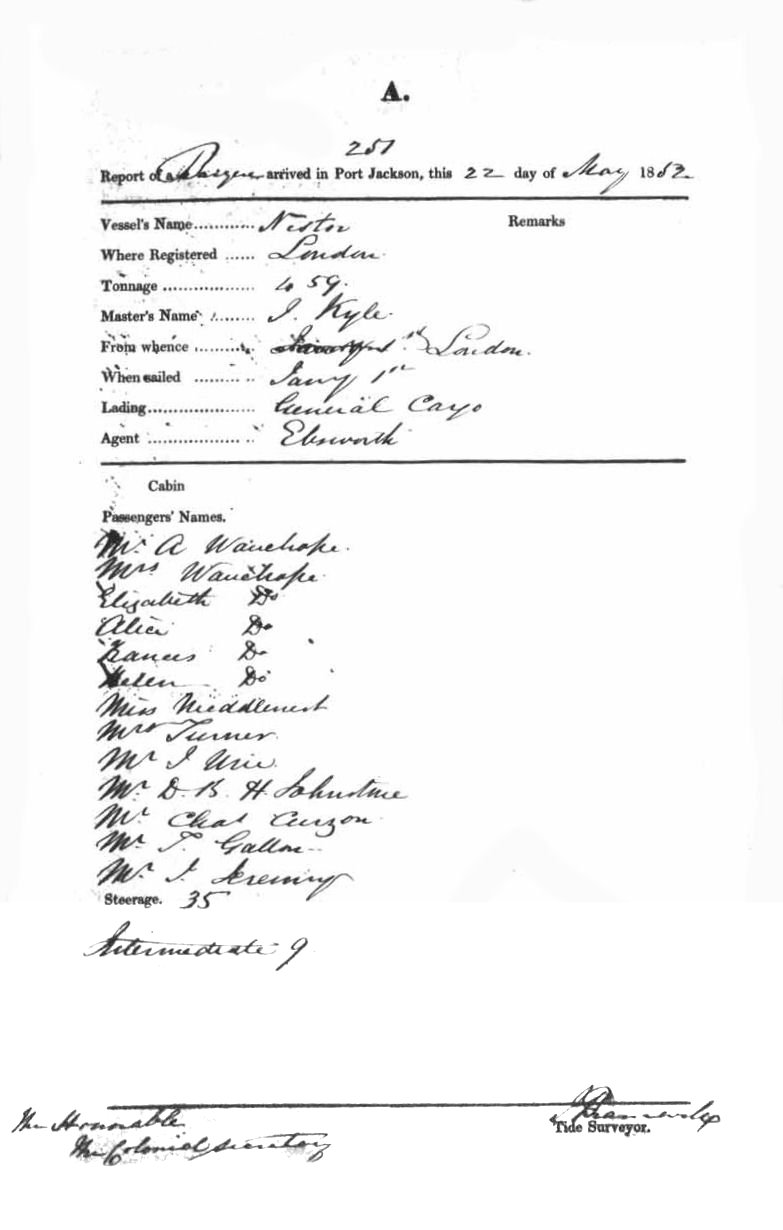 A.
251
Report of a arrived in Port Jackson, this 22 day of May 1852.
Vessel's Name............ Nestor Remarks
Where Registered ...... London.
Tonnage .................. 459.
Master's Name ........ J. Kyle.
From whence ........... London.
When sailed ........... Jany 1st
Lading...................... General Cargo
Agent ..................... Ebsworth
Cabin
Passengers' Names.
Mr. A Wauchope.
Mrs Wauchope.
Elizabeth Do
Alice Do
Frances Do
Helen Do
Miss
Mrs Turner.
Mr J Urie.
Mr. D. B. H. Johnstone
Mr Chas Curzon
Mr. T. Gallon
Mr. J. Jeremy
Steerage. 35
Intermediate 9
The Honorable
The Colonial Secretary
Tide Surveyor.